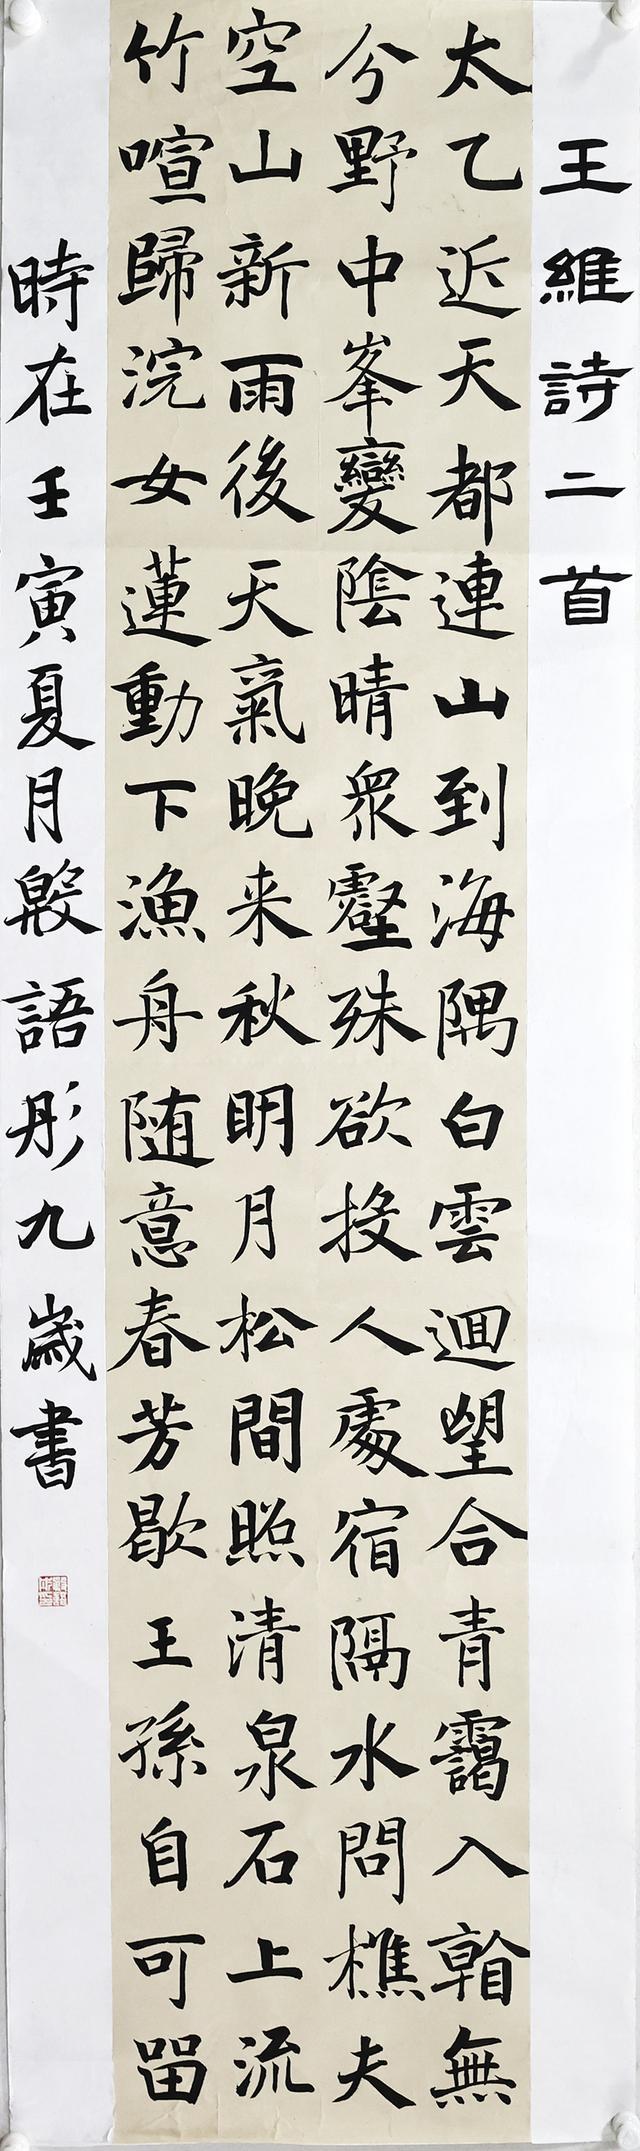 王維詩二首
太乙近天都連山到海隅白雲迴望合青靄入看無
分野中峯變陰晴衆壑殊欲投人處宿隔水問樵夫
空山新雨後天氣晚来秋明月松間照清泉石上流
竹喧歸浣女蓮動下漁舟随意春芳歇王孫自可留
時在壬寅夏月殷語彤九歲書